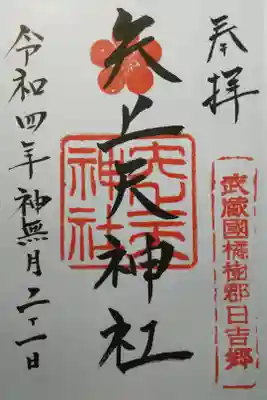 奉拝
武蔵國橘樹郡日吉郷
矢上天神社
矢上天神社
令和四年神無月二十一日